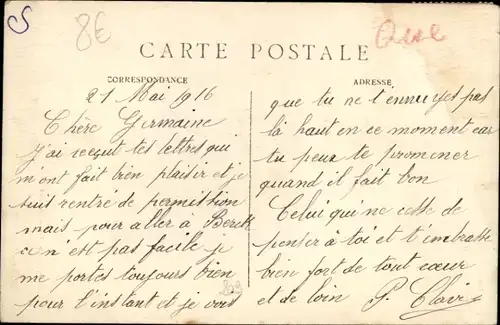 S
8€
Oise
CARTE POSTALE
CORRESPONDANCE
ADRESSE
21 Mai 1916
Chère Germaine
J'ai recçut tes lettres qui
m ont fait bien plaisir et je
suis rentré de permission
mais pour aller à
ce n'est pas facile je
me portes toujours bien
pour l'instant et je vois
que tu ne t'ennuyes pas
là haut en ce moment car
tu peux te promener
quand il fait bon
Celui qui ne cesse de
penser à toi et t'embrasse
bien fort de tout cœur
et de loin P.